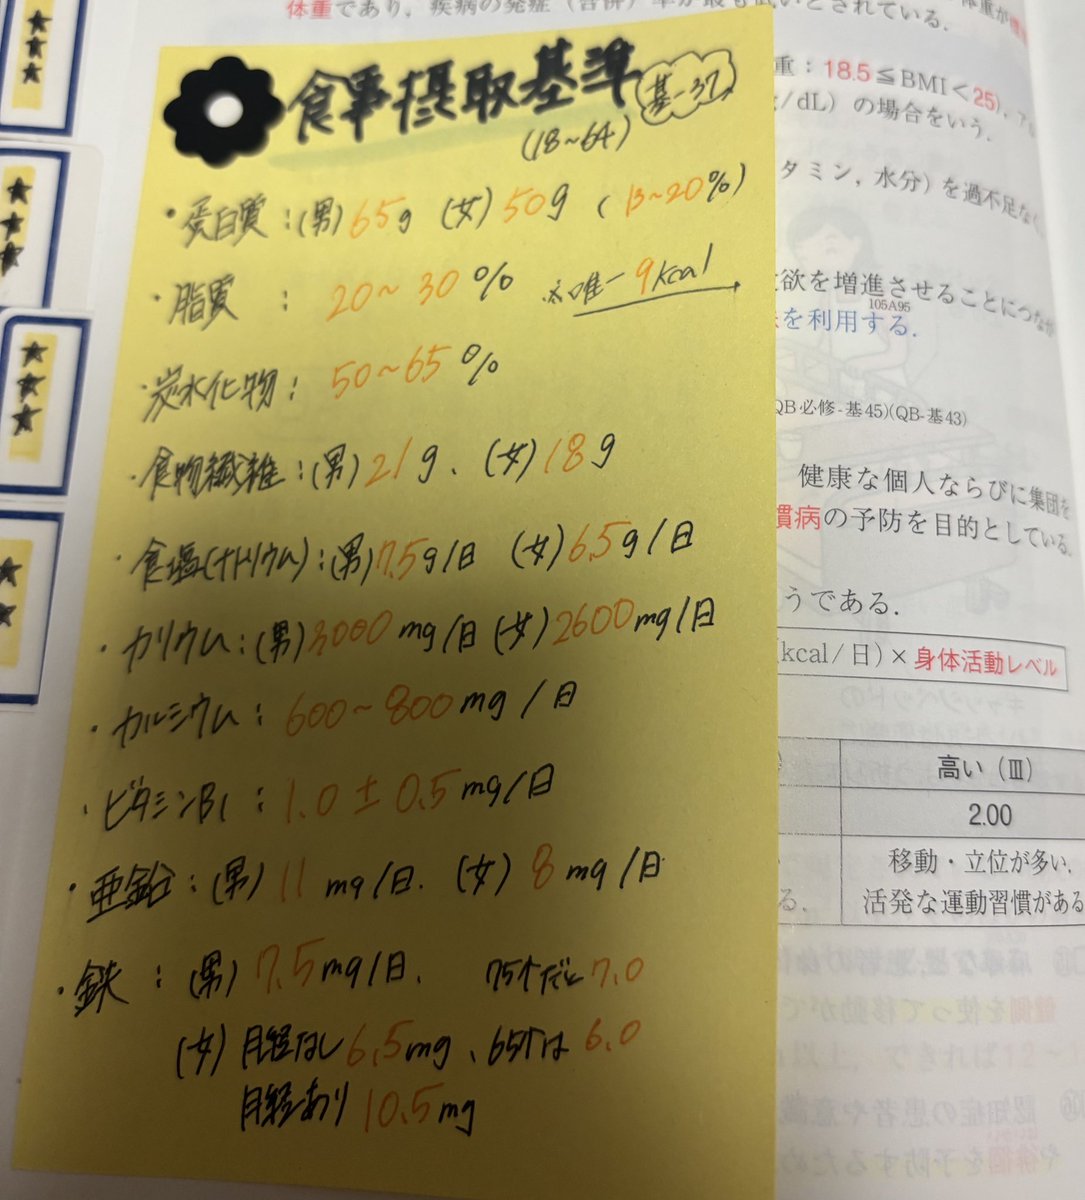 体重であり，疾病の発症（合併）率が最も低いとされている．
食事摂取基準
基-37
(18~64)
・蛋白質：(男)65g (女)50g (13~20%)
・脂質 ： 20~30% ※唯一9kcal
・炭水化物： 50~65%
・食物繊維：(男)21g、(女)18g
・食塩(ナトリウム)：(男)7.5g/日 (女)6.5g/日
・カリウム：(男)3000mg/日 (女)2600mg/日
・カルシウム： 600~800mg/日
・ビタミンB1： 1.0±0.5mg/日
・亜鉛：(男) 11mg/日. (女) 8mg/日
・鉄：(男) 7.5mg/日. 75才だと7.0
(女) 月経なし6.5mg、65才は6.0
月経あり10.5mg
重：18.5≦BMI＜25)
/dL）の場合をいう．
タミン, 水分）を過不足な
欲を増進させることにつなが
105A95
を利用する．
QB必修-基45)(QB-基43)
健康な個人ならびに集団を
慣病の予防を目的としている．
うである．
(kcal/日)×身体活動レベル
高い（Ⅲ）
2.00
移動・立位が多い．
活発な運動習慣がある
る．